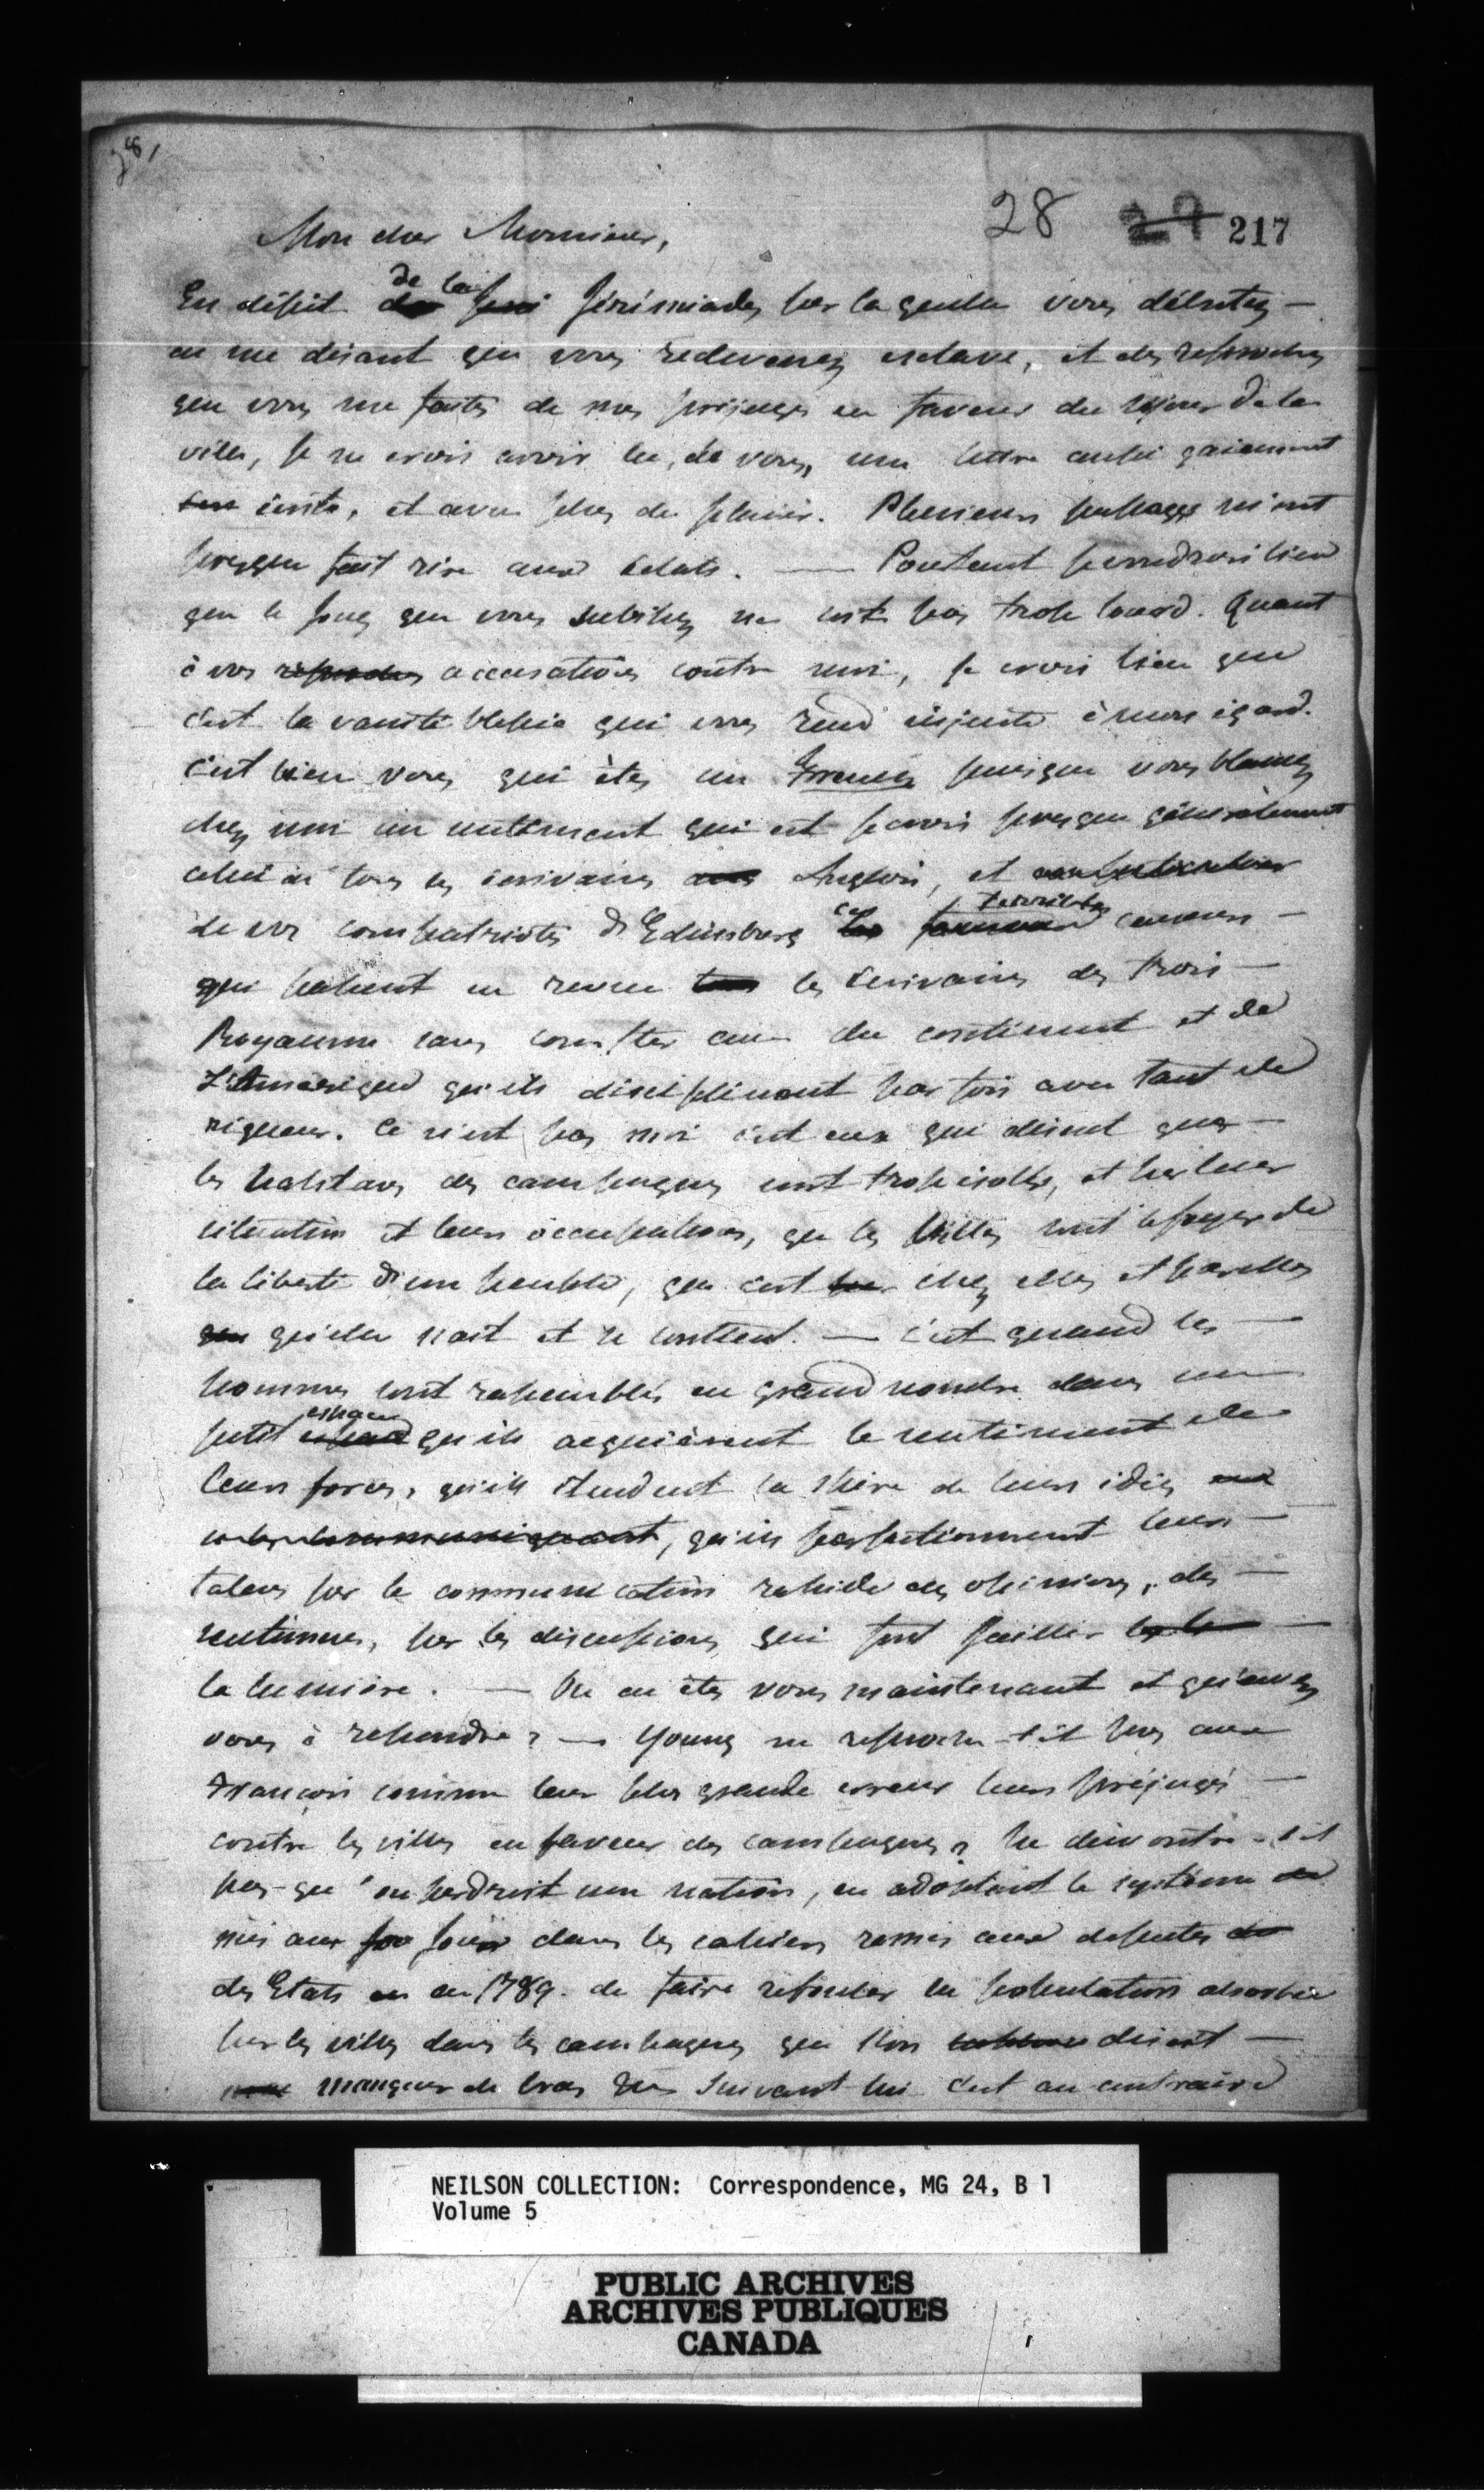 28,
28 29 217
Mon cher Monsieur,
En dépit de la Jérémiade par laquelle vous débutez —
en me disant que vous redevenez esclave, et des reproches
que vous me faites de mes préjugés en faveur du séjour de la
ville, je ne crois avoir lu, de vous, une lettre aussi gaiement
écrite, et avec plus de plaisir. Plusieurs passages m'ont
presque fait rire aux éclats. — Pourtant je voudrois bien
que le joug que vous subissez ne soit pas trop lourd. Quant
à vos reproches accusations contre moi, je crois bien que
c'est la vanité blessée qui vous rend injuste à mon égard.
c'est bien vous qui êtes un puisque vous blamez
chez moi un sentiment qui est je crois presque généralement
celui de tous les écrivains Anglois, et
de vos compatriotes d'Edinburg ces terribles censeurs —
qui passent en revue tous les écrivains des trois —
Royaume sans compter ceux du continent et de
L'Amérique qu'ils disciplinent par fois avec tant de
rigueur. Ce n'est pas moi c'est eux qui disent que —
les habitans des campagnes sont trop isolés, et par leur
situation et leurs occupations, que les villes sont le foyer de
la liberté d'un peuple, que c'est par chez elles et par elles
que qu'elle nait et se soutient. — c'est quand les —
hommes sont rassemblés en grand nombre dans un
petit espace qu'ils acquièrent le sentiment de
leurs forces, qu'ils étendent la sphère de leurs idées
en les communiquant, qu'ils perfectionnent leurs —
talens par la communication rapide des opinions, des —
sentimens, par les discussions qui font jaillir —
la lumière. — Où en êtes vous maintenant et qu'avez
vous à repondre ? — Young ne reproche-t-il pas aux
François comme leur plus grande erreur leurs préjugés —
contre les villes en faveur des campagnes, ne démontre-t-il
pas qu'on perdroit une nation, en adoptant le système
mis au jour dans les cahiers remis aux deputés
des Etats en 1789. de faire refouler la population absorbée
par les villes dans les campagnes que l'on disait —
manquer de bras Suivant lui c'est au contraire
NEILSON COLLECTION: Correspondence, MG 24, B 1
Volume 5
PUBLIC ARCHIVES
ARCHIVES PUBLIQUES
CANADA